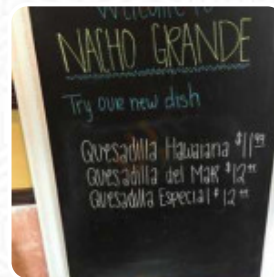 Welcome to
NACHO GRANDE
Try our new dish
Quesadilla Hawaiana $11⁹⁹
Quesadilla del Mar $12
Quesadilla Especial $12